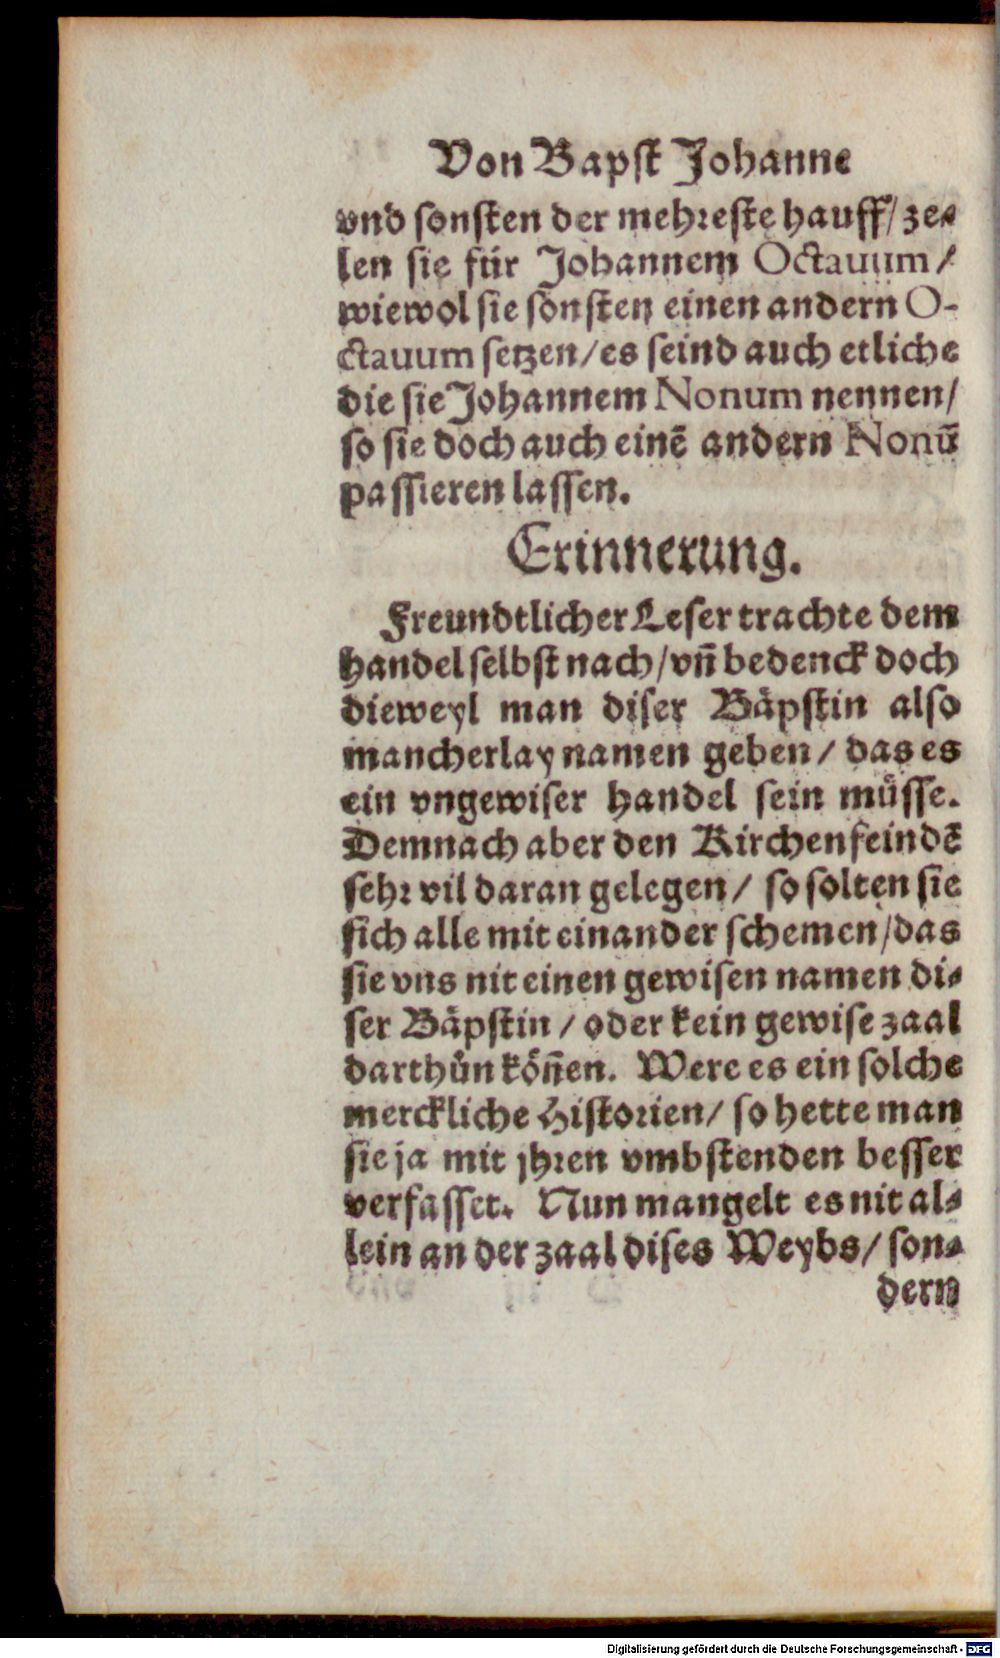 Von Bapst Johanne
vnd sonsten der mehreste hauff/ ze-
len sie für Johannem Octauum/
wiewol sie sonsten einen andern O-
ctauum setzen/ es seind auch etliche
die sie Johannem Nonum nennen/
so sie doch auch einē andern Nonū
passieren lassen.
Erinnerung.
Freundtlicher Leser trachte dem
handel selbst nach/ vn̄ bedenck doch
dieweyl man diser Bäpstin also
mancherlay namen geben/ das es
ein vngewiser handel sein müsse.
Demnach aber den Kirchenfeindē
sehr vil daran gelegen/ so solten sie
sich alle mit einander schemen/ das
sie vns nit einen gewisen namen di-
ser Bäpstin/ oder kein gewise zaal
darthůn kön̄en. Were es ein solche
merckliche Historien/ so hette man
sie ja mit jhren vmbstenden besser
verfasset. Nun mangelt es nit al-
lein an der zaal dises Weybs/ son-
dern
Digitalisierung gefördert durch die Deutsche Forschungsgemeinschaft - DFG